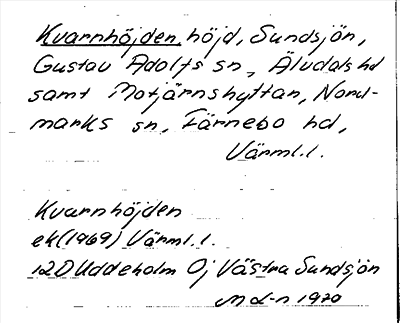 Kvarnhöjden, höjd, Sundsjön,
Gustav Adolfs sn, Älvdals hd
samt Motjärnshyttan, Nord-
marks sn, Färnebo hd,
Värml.l.
Kvarnhöjden
ek(1969) Värml.l.
12D Uddeholm Oj Västra Sundsjön
M L-n 1970